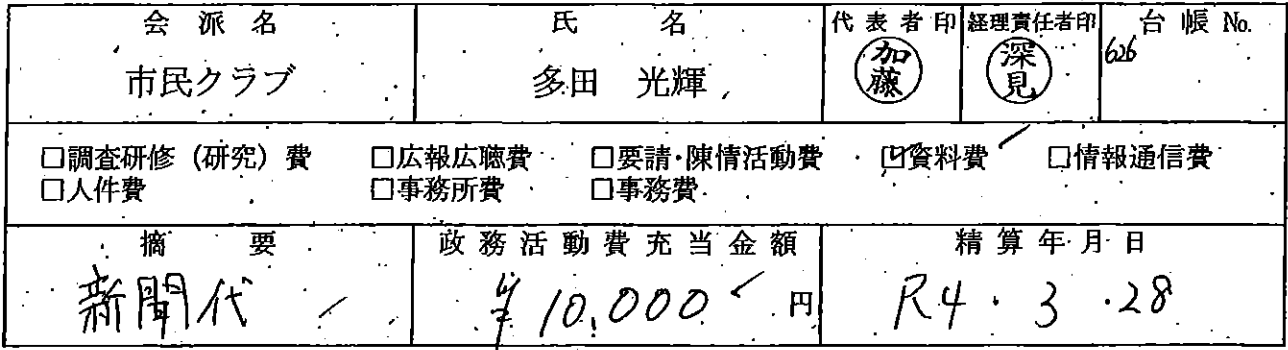 会派名 氏名 代表者印 経理責任者印 台帳No.
市民クラブ 多田 光輝 加藤 深見 626
□調査研修（研究）費 □広報広聴費 □要請・陳情活動費 ☑資料費 □情報通信費
□人件費 □事務所費 □事務費
摘要 政務活動費充当金額 精算年月日
新聞代 ¥10,000 円 R4・3・28